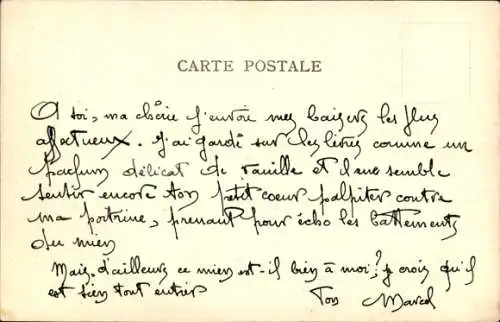 CARTE POSTALE
A toi, ma chérie j'envoie mes baisers les plus
affectueux. J'ai gardé sur les lèvres comme un
parfum délicat de vanille et il me semble
sentir encore ton petit coeur palpiter contre
ma poitrine, prenant pour écho les battements
du mien
Mais d'ailleurs ce mien est-il bien à moi? je crois qu'il
est tien tout entier
Ton Marcel